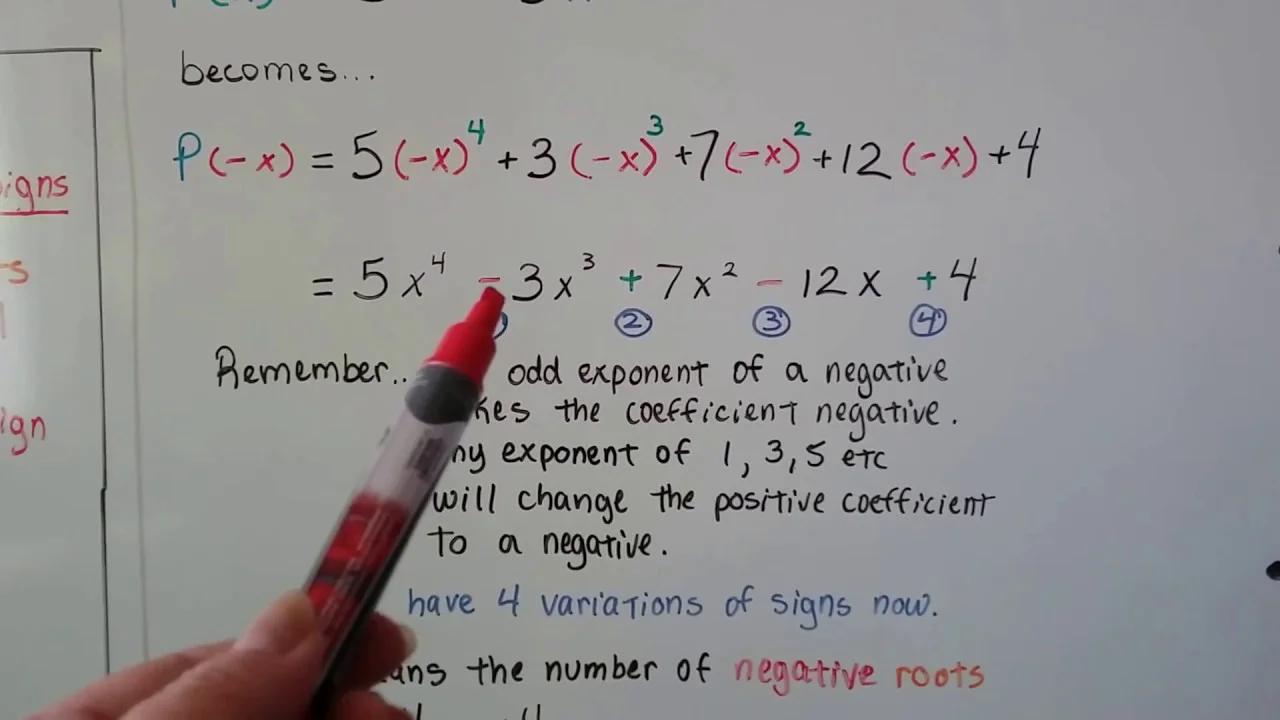 becomes...
P(-x) = 5(-x)⁴ + 3(-x)³ + 7(-x)² + 12(-x) + 4
igns
= 5x⁴ - 3x³ + 7x² - 12x + 4
② ③ ④
Remember.. odd exponent of a negative
kes the coefficient negative.
ny exponent of 1, 3, 5 etc
ign
will change the positive coefficient
to a negative.
have 4 variations of signs now.
ans the number of negative roots